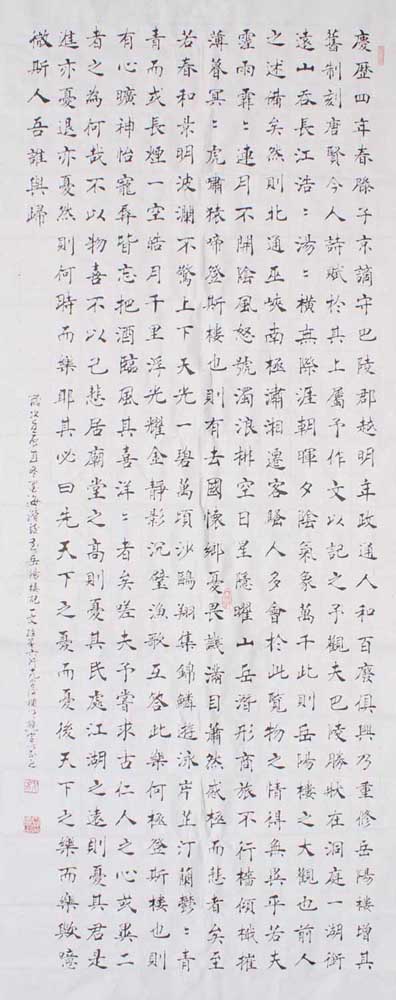 慶歷四年春滕子京謫守巴陵郡越明年政通人和百廢俱興乃重修岳陽樓增其
舊制刻唐賢今人詩賦於其上屬予作文以記之予觀夫巴陵勝狀在洞庭一湖銜
遠山吞長江浩〻湯〻橫無際涯朝暉夕陰氣象萬千此則岳陽樓之大觀也前人
之述備矣然則北通巫峽南極瀟湘遷客騷人多會於此覽物之情得無異乎若夫
霪雨霏〻連月不開陰風怒號濁浪排空日星隱曜山岳潛形商旅不行檣傾楫摧
薄暮冥〻虎嘯猿啼登斯樓也則有去國懷鄉憂畏譏滿目蕭然感極而悲者矣至
若春和景明波瀾不驚上下天光一碧萬頃沙鷗翔集錦鱗遊泳岸芷汀蘭鬱〻青
青而或長煙一空皓月千里浮光耀金靜影沉璧漁歌互答此樂何極登斯樓也則
有心曠神怡寵辱皆忘把酒臨風其喜洋〻者矣嗟夫予嘗求古仁人之心或異二
者之為何哉不以物喜不以己悲居廟堂之高則憂其民處江湖之遠則憂其君是
進亦憂退亦憂然則何時而樂耶其必曰先天下之憂而憂後天下之樂而樂歟噫
微斯人吾誰與歸
岳陽樓記一文